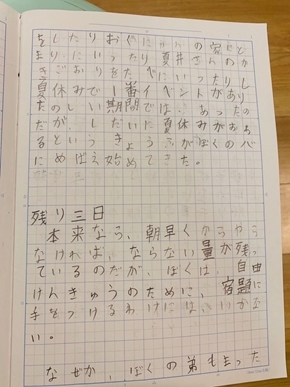 をしたりおぐに んの家にと
まりにいったり夏井さんのか
きごおりをたべにいったりし
夏休みで1番イベントがあり
たのしい期間では、あったの
だが、しだいに夏休みがおわ
るというきょうふがぼくの
にめばえ始めてきた。
残り三日
本来なら、朝早くからやら
なければ、ならない量が残っ
ているのだが、ぼくは、自由
けんきゅうのために、宿題に
手をつけるわけにはいかな
い。
なぜか、ぼくの弟もまった